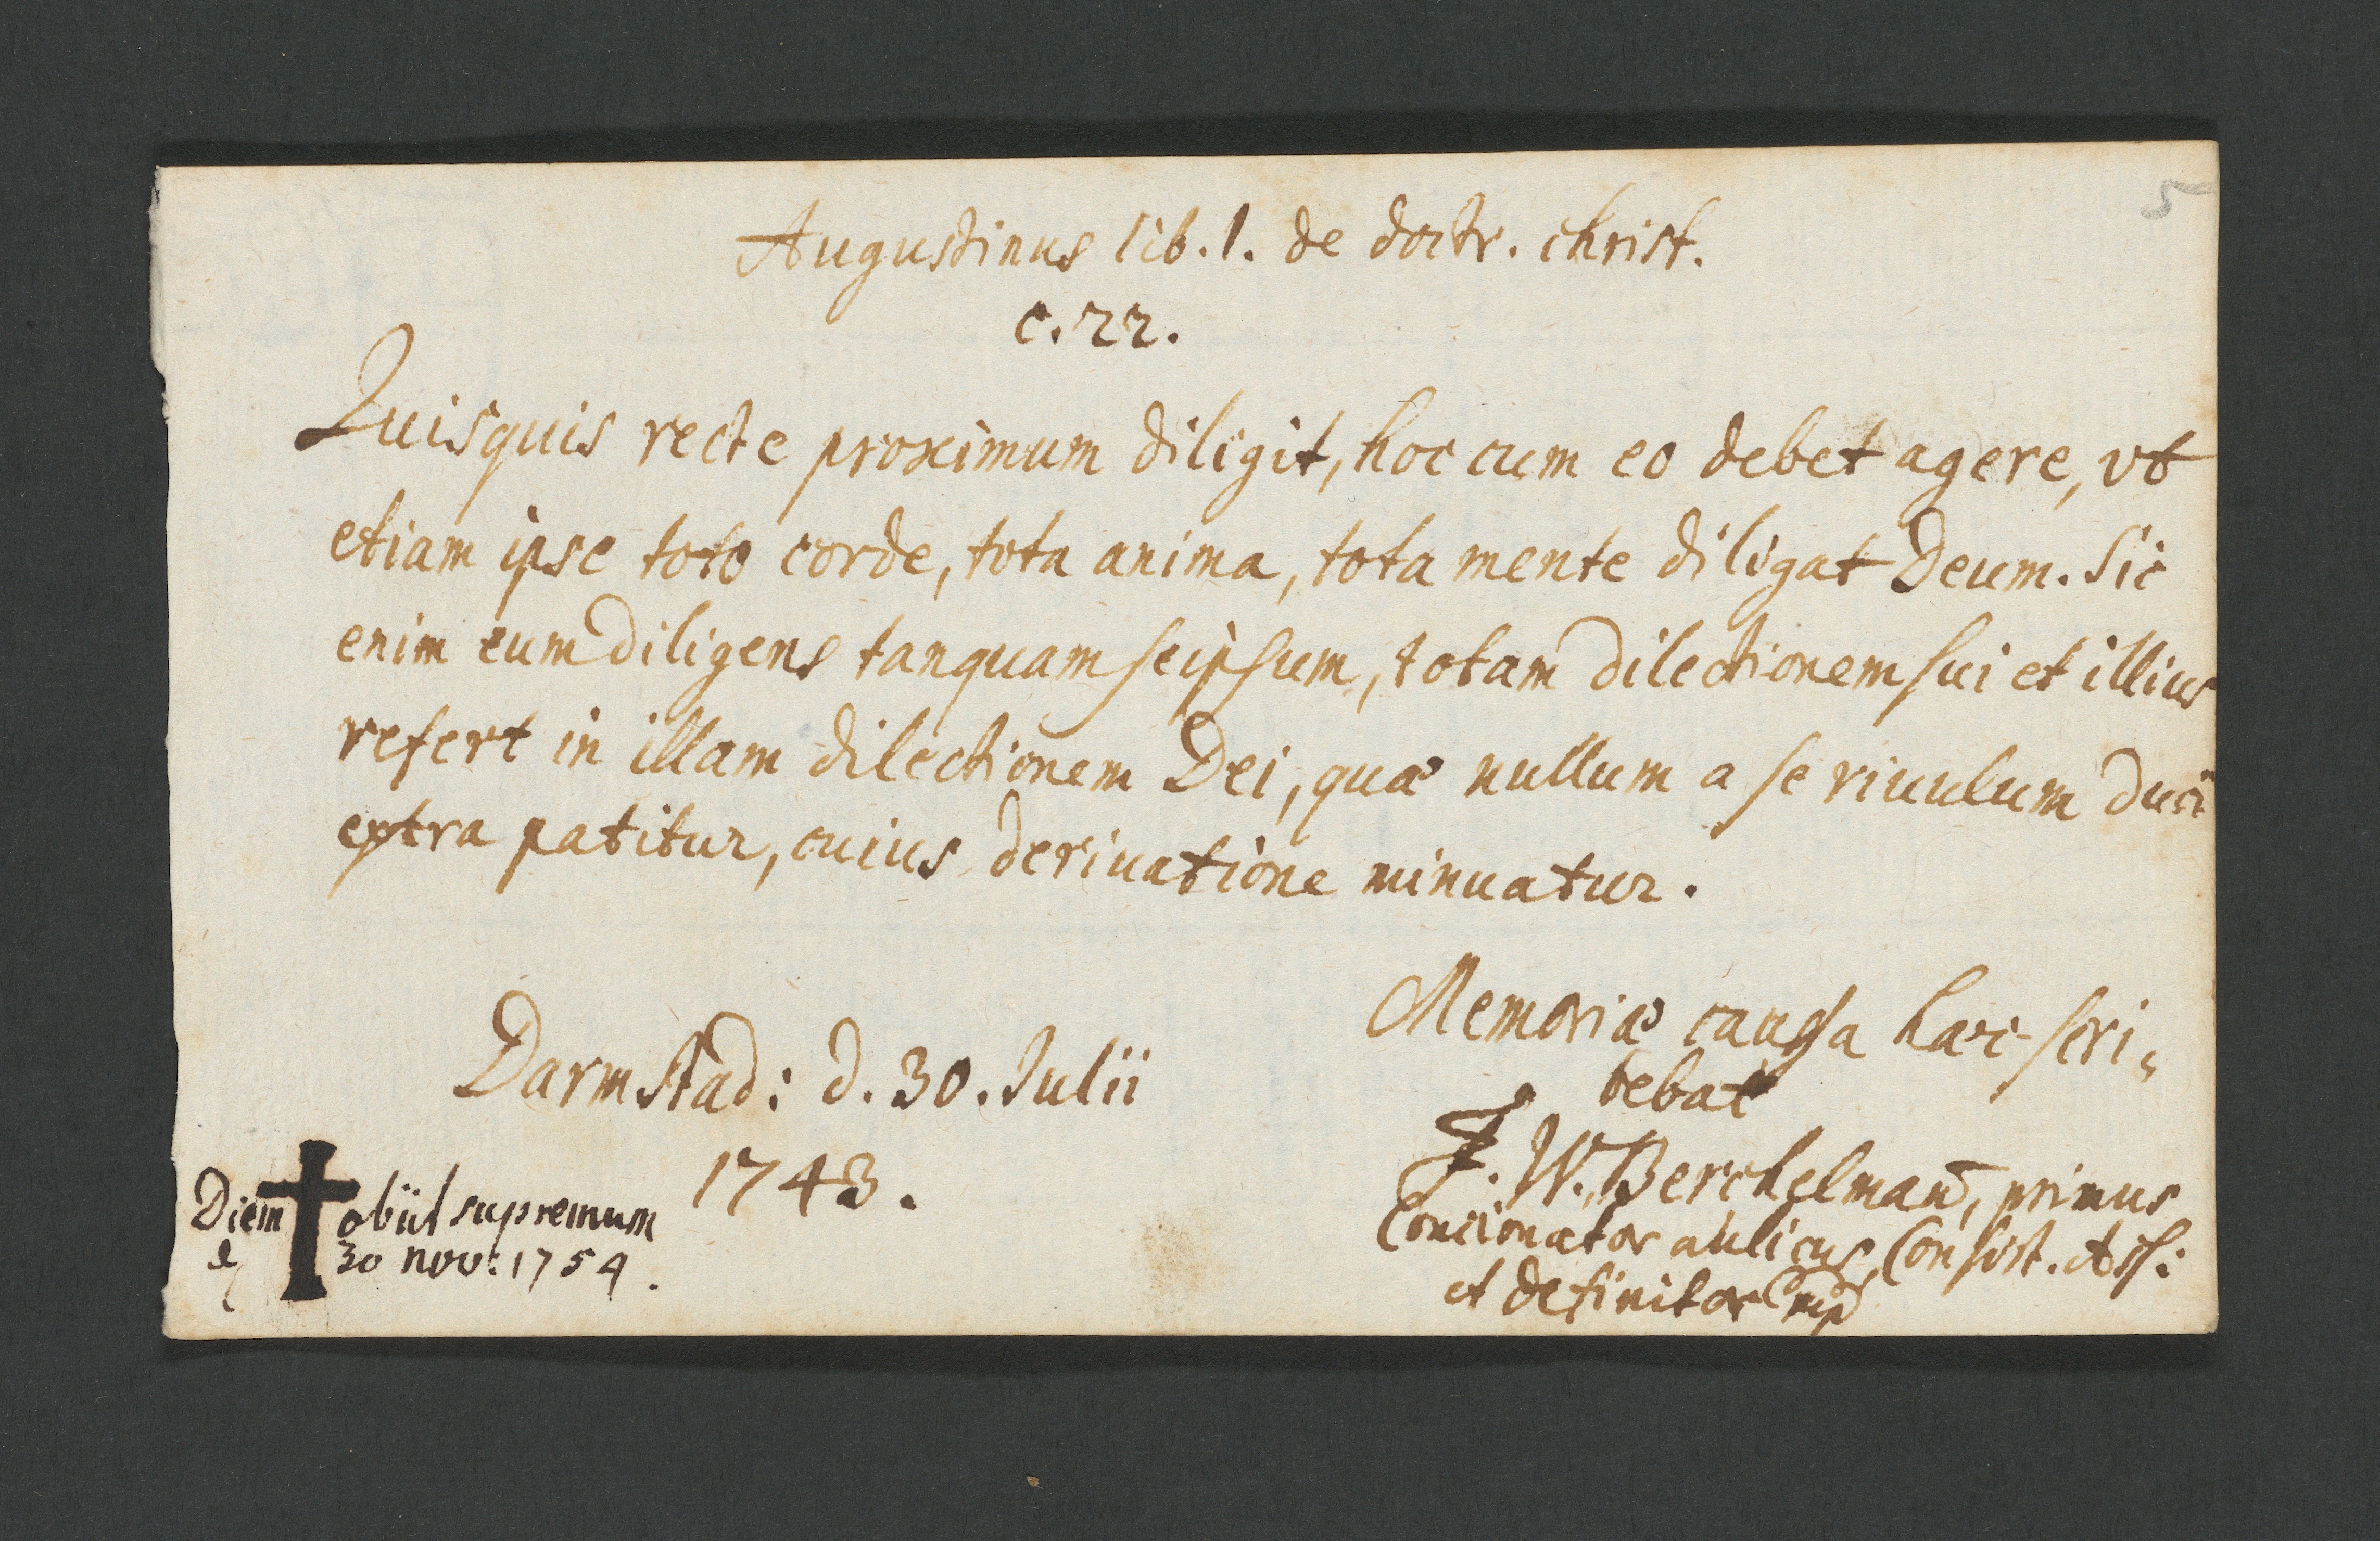 5
Augustinus lib. 1. de doctr. christ.
c. 22.
Quisquis recte proximum diligit, hoc cum eo debet agere, vt
etiam ipse toto corde, tota anima, tota mente diligat Deum. Sic
enim eum diligens tanquam seipsum, totam dilectionem sui et illius
refert in illam dilectionem Dei, quæ nullum a se riuulum duci
extra patitur, cuius deriuatione minuatur.
Memoriæ caussa hæc scri-
bebat
Darmstad: d. 30. Julii
1743.
J. W. Berchelmañ, primus
Concionator aulicus, Consist. Ass:
et Definitor mp
Diem obiit supremum
d 30 nov: 1754.